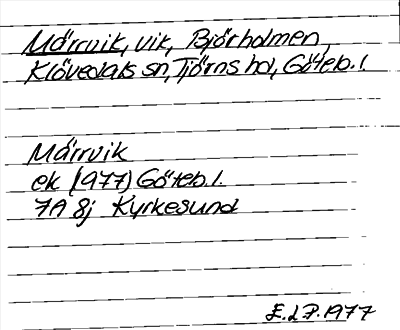 Märrvik, vik, Bjorholmen,
Klövedals sn, Tjörns hd, Göteb. l.
Märrvik
ek (1977) Göteb. l.
7A 8j Kyrkesund
E.L.P. 1977